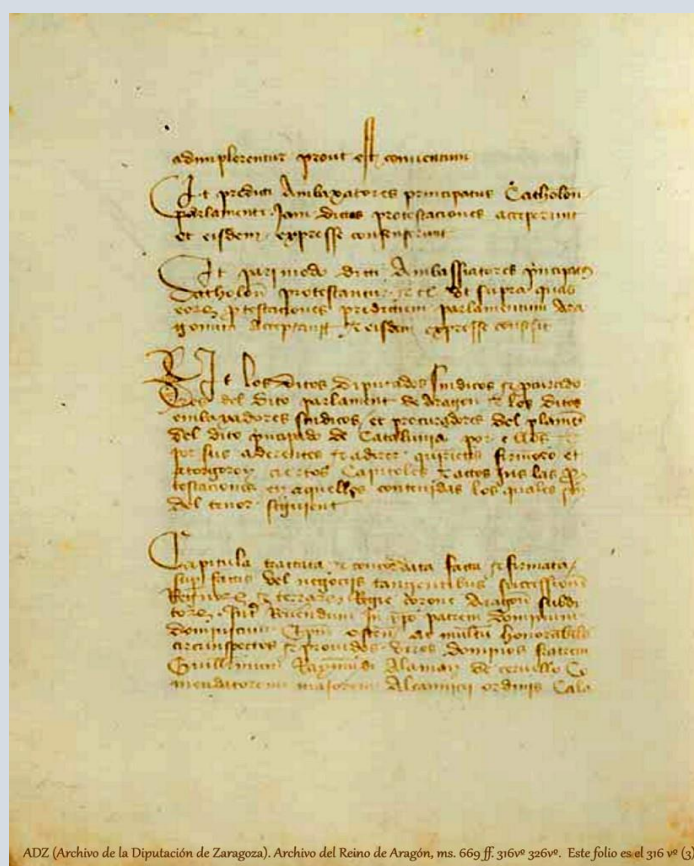 adimplerentur prout est conventum
Et predicti Ambaxatores principatus Catholon
parlamenti Jam dictas protestaciones acceperunt
et eisdem expresse consenserunt
Et pari modo dicti Ambassiatores principat
Catholon protestantur &c ut supra quas
protestaciones predictum parlamentum Ara
gonum acceptavit & eisdem expresse consensit
Et los ditos diputados sindicos & procurado
res del dito parlament de Aragon & los ditos
embaxadores sindicos et procuradores del plamen
del dito principado de Catalunia por ellos &
por sus aderentes & adherir quisientes firmoron et
atorgoron ciertos Capitoles & actos Jus las pro
testaciones en aquellos contenidas los quales son
del tenor siguient
Capitula tractata & concordata facta & firmata
super factis vel negociis tangentibus successionem
Regnorum & terrarum Regie corone Aragon subdi
torum Inter Reverendum in xpo patrem dominum
dominicum Epum osten ac multum honorabiles
circunspectos & providos viros dominos fratrem
Guillermum Raymundi Alaman de cervello Co
mendatorem maiorem Alcannicii ordinis Cala
ADZ (Archivo de la Diputación de Zaragoza). Archivo del Reino de Aragón, ms. 669 ff. 316vº 326vº. Este folio es el 316 vº (3)